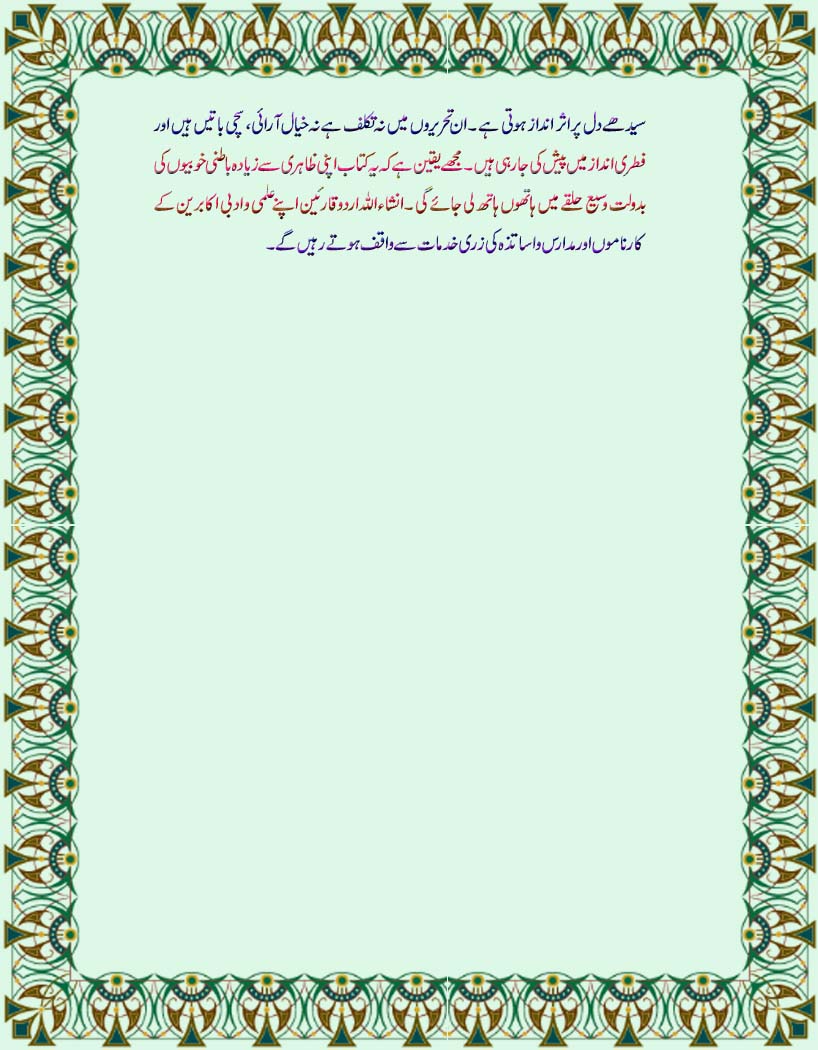 سیدھے دل پر اثر انداز ہوتی ہے۔ ان تحریروں میں نہ تکلف ہے نہ خیال آرائی، سچی باتیں ہیں اور
فطری انداز میں پیش کی جارہی ہیں۔ مجھے یقین ہے کہ یہ کتاب اپنی ظاہری سے زیادہ باطنی خوبیوں کی
بدولت وسیع حلقے میں ہاتھوں ہاتھ لی جائے گی۔ انشاء اللہ اردو قارئین اپنے علمی و ادبی اکابرین کے
کارناموں اور مدارس و اساتذہ کی زری خدمات سے واقف ہوتے رہیں گے۔